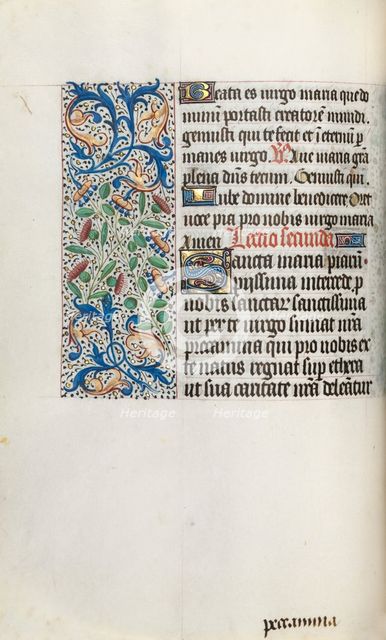 Beata es virgo maria que do
minum portasti creatorē mundi.
genuisti qui te fecit et ī eternū p
manes virgo. Aue maria gra
plena dn̄s tecum. Genuisti qui.
Iube domne benedicere. Oret
voce pia pro nobis virgo maria
Amen. Lectio secunda
Sancta maria piarū
piissima intercede p
nobis sanctar̄ sanctissima
ut per te virgo sumat nr̄a
peccamina qui pro nobis ex
te natus regnat sup ethera
ut sua caritate nr̄a deleātur
peccamina
Heritage Heritage